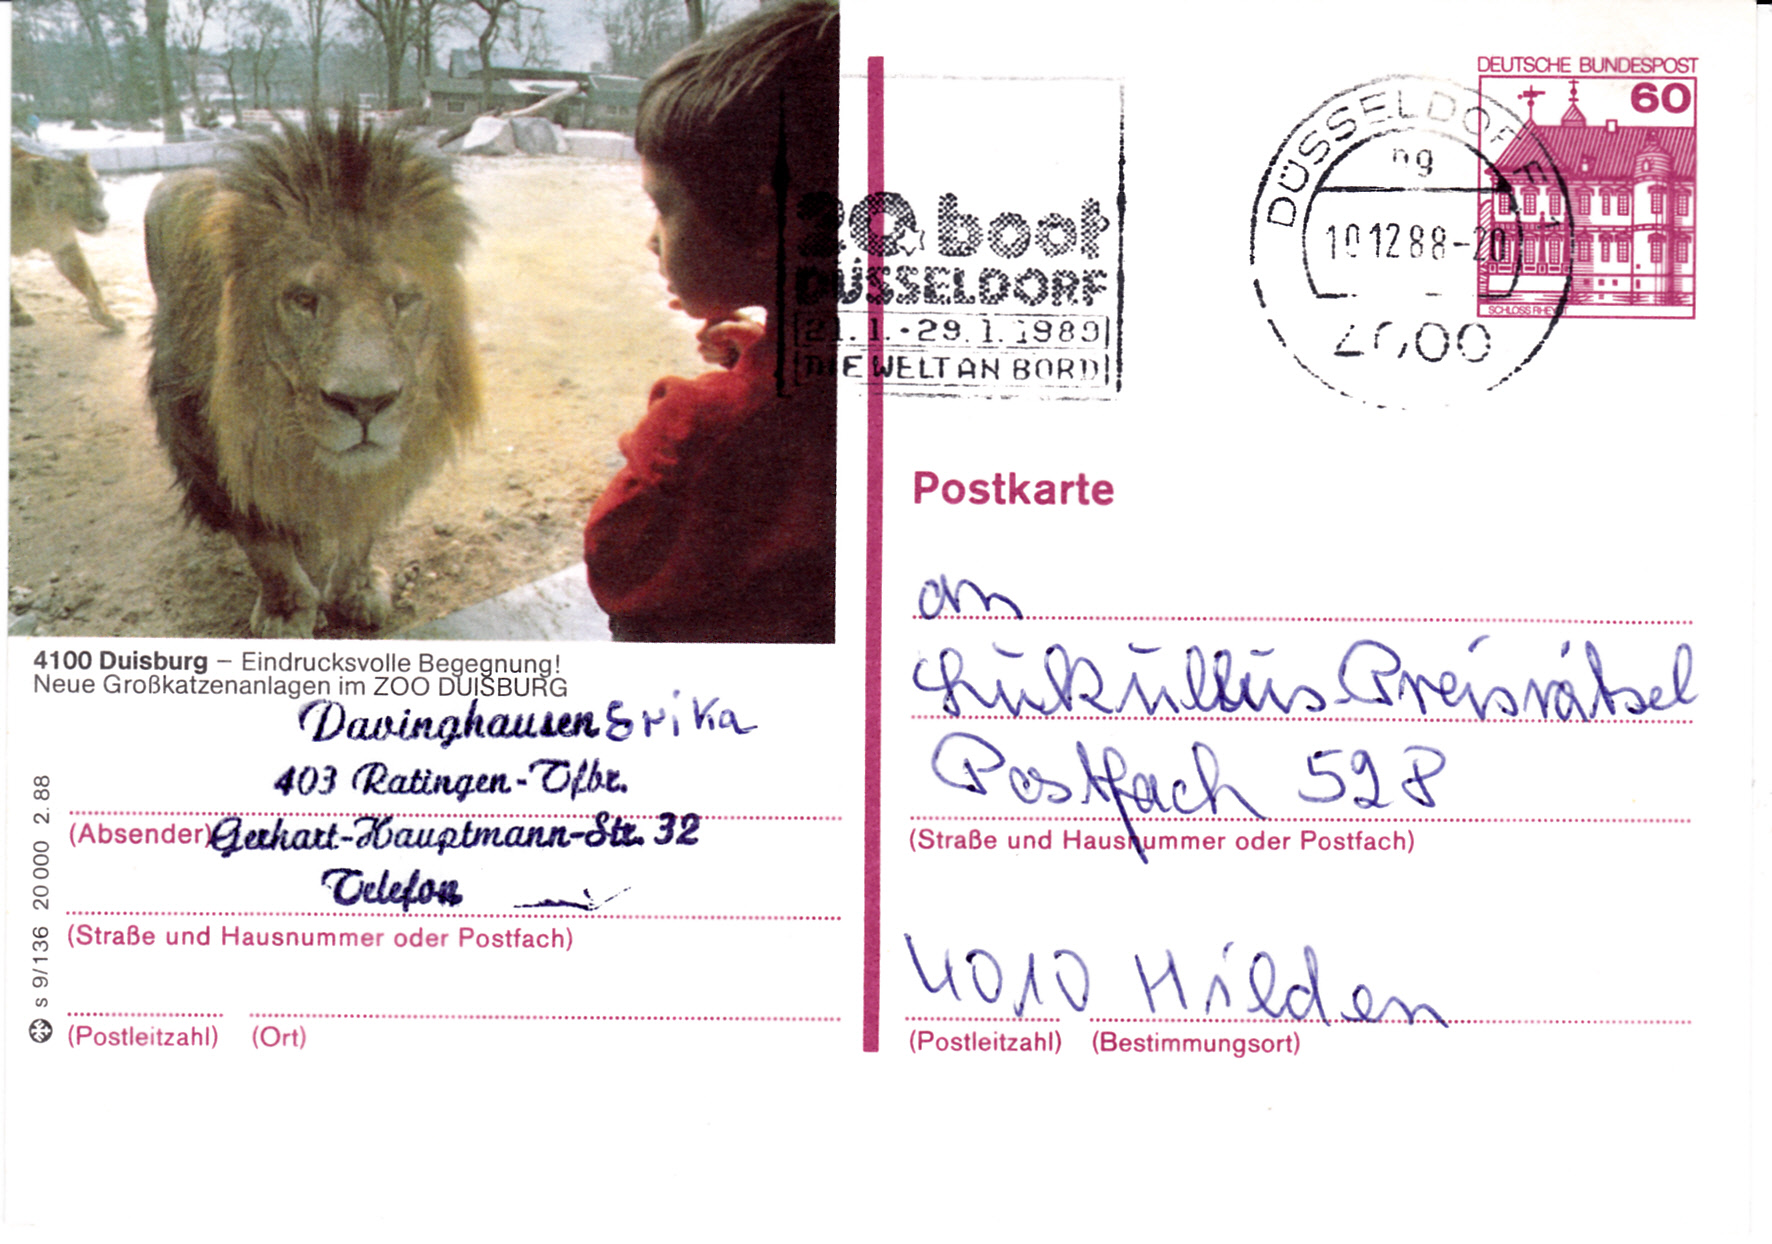 DEUTSCHE BUNDESPOST
60
SCHLOSS RHEYDT
DÜSSELDORF 1
ng
10.12.88-20
4000
20. boot
DÜSSELDORF
21.1.-29.1.1989
DIE WELT AN BORD
4100 Duisburg – Eindrucksvolle Begegnung!
Neue Großkatzenanlagen im ZOO DUISBURG
Davinghausen Erika
403 Ratingen-Tfbr.
(Absender) Gerhart-Hauptmann-Str. 32
Telefon
(Straße und Hausnummer oder Postfach)
(Postleitzahl) (Ort)
s 9/136 20000 2.88
Postkarte
an
Lukullus Preisrätsel
Postfach 528
(Straße und Hausnummer oder Postfach)
4010 Hilden
(Postleitzahl) (Bestimmungsort)